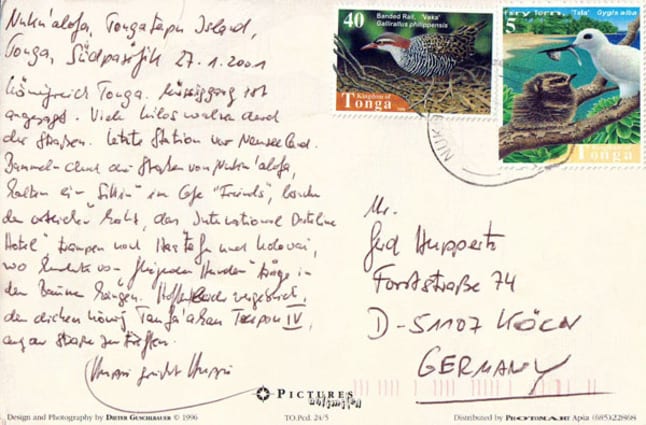 Nuku'alofa, Tongatapu Island,
Tonga, Südpazifik 27.1.2001
Königreich Tonga. Müssiggang ist
angesagt. Viele Kilos walzen durch
die Straßen. Letzte Station vor Neuseeland.
Bammeln durch die Straßen von Nuku'alofa,
halten ein im Cafe "Friends",
den "International Dateline
Hotel" trampen nach und Kolovai,
wo Hunderte von "fliegenden Hunden" träge in
den Bäumen hängen. Hoffen vergeblich,
den dicken König Taufa'ahau Toupou IV,
auf der Straße zu treffen.
Huppi grüßt Huppi
40
Banded Rail, 'Veka'
Gallirallus philippensis
Kingdom of
Tonga
5
Fairy Tern, 'Tala' Gygis alba
Tonga
NUK
Mr.
Gerd Huppertz
Forststraße 74
D-51107 KÖLN
GERMANY
PICTURES
Design and Photography by DIETER GUSCHLBAUER © 1996
TO.Pcd. 24/5
Distributed by PROTOMART Apia (685)22868